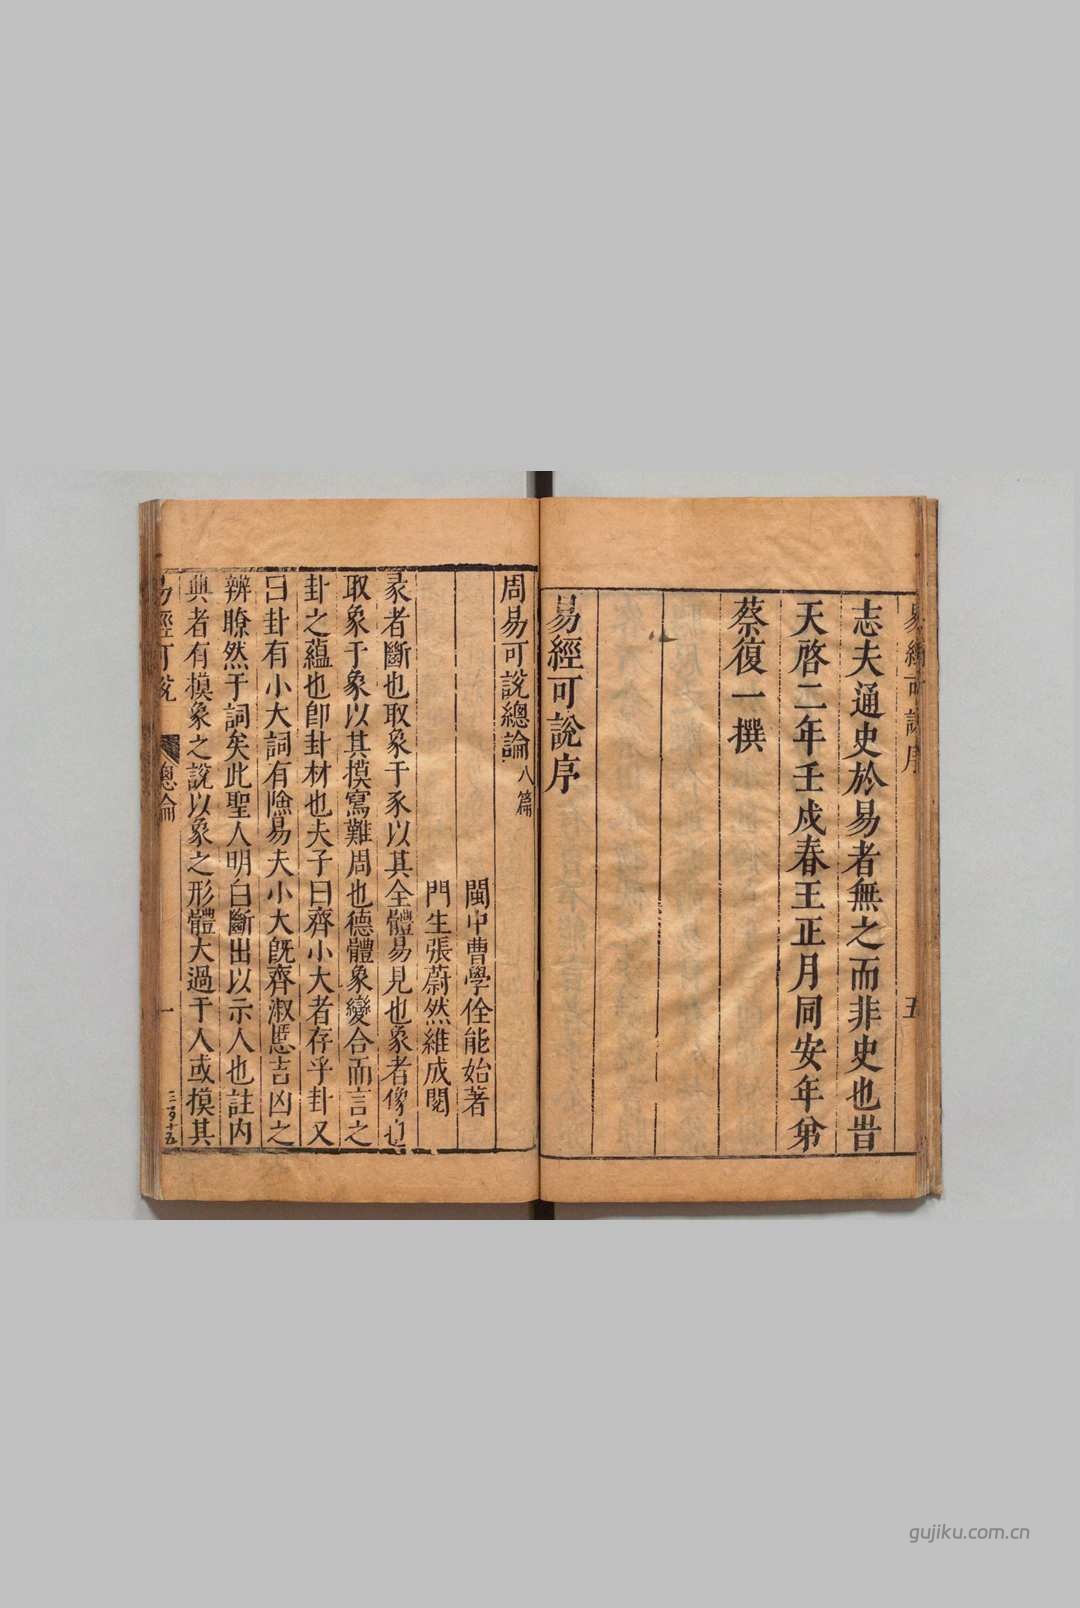 易經可說序
五
志夫通史於易者無之而非史也旹
天啓二年壬戍春王正月同安年弟
蔡復一撰
易經可說序
周易可說總論八篇
閩中曹學佺能始著
門生張蔚然維成閱
彖者斷也取象于豕以其全體易見也象者像也
取象于象以其摸寫難周也德體象變合而言之
卦之蘊也卽卦材也夫子曰齊小大者存乎卦又
曰卦有小大詞有險易夫小大旣齊淑慝吉凶之
辨瞭然于詞矣此聖人明白斷出以示人也註內
與者有摸象之說以象之形體大過于人或摸其
易經可說
總論
一
三百十五
gujiku.com.cn